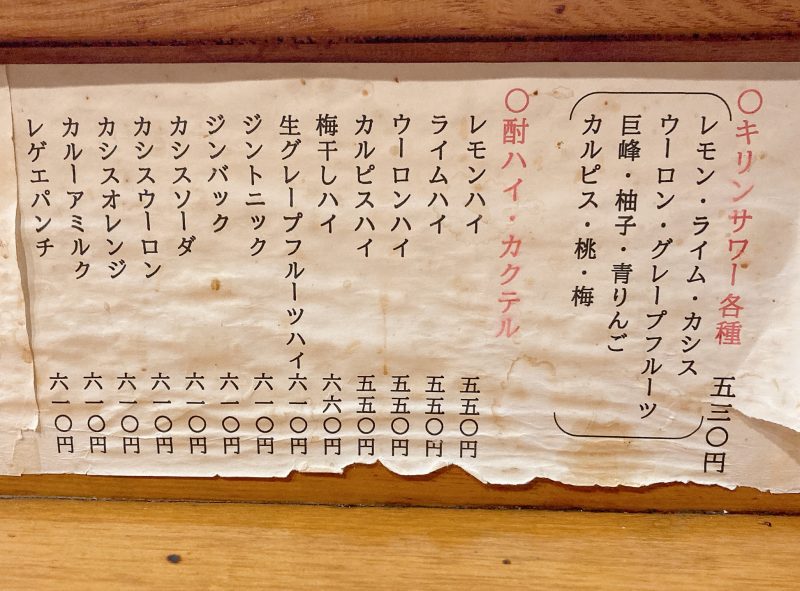 〇キリンサワー各種 五三〇円
レモン・ライム・カシス
ウーロン・グレープフルーツ
巨峰・柚子・青りんご
カルピス・桃・梅
〇酎ハイ・カクテル
レモンハイ 五五〇円
ライムハイ 五五〇円
ウーロンハイ 五五〇円
カルピスハイ 五五〇円
梅干しハイ 六六〇円
生グレープフルーツハイ 六一〇円
ジントニック 六一〇円
ジンバック 六一〇円
カシスソーダ 六一〇円
カシスウーロン 六一〇円
カシスオレンジ 六一〇円
カルーアミルク 六一〇円
レゲエパンチ 六一〇円